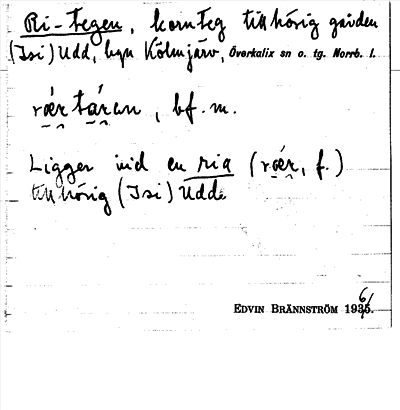 Ri-tegen, kornteg tillhörig gården
(Isi) Udd, byn Kölmjärv, Överkalix sn o. tg. Norrb. l.
rǿertáren, bf. m.
Ligger vid en ria (rǿer, f.)
tillhörig (Isi) Udde
EDVIN BRÄNNSTRÖM 1936/.